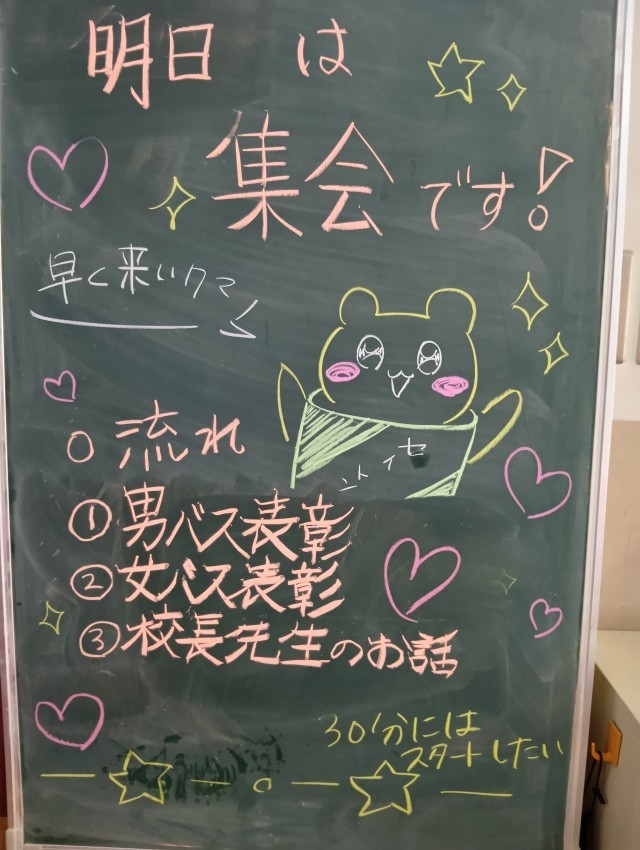 明日は
集会です!
早く来いクマ
○ 流れ
① 男バス表彰
② 女バス表彰
③ 校長先生のお話
30分には
スタートしたい